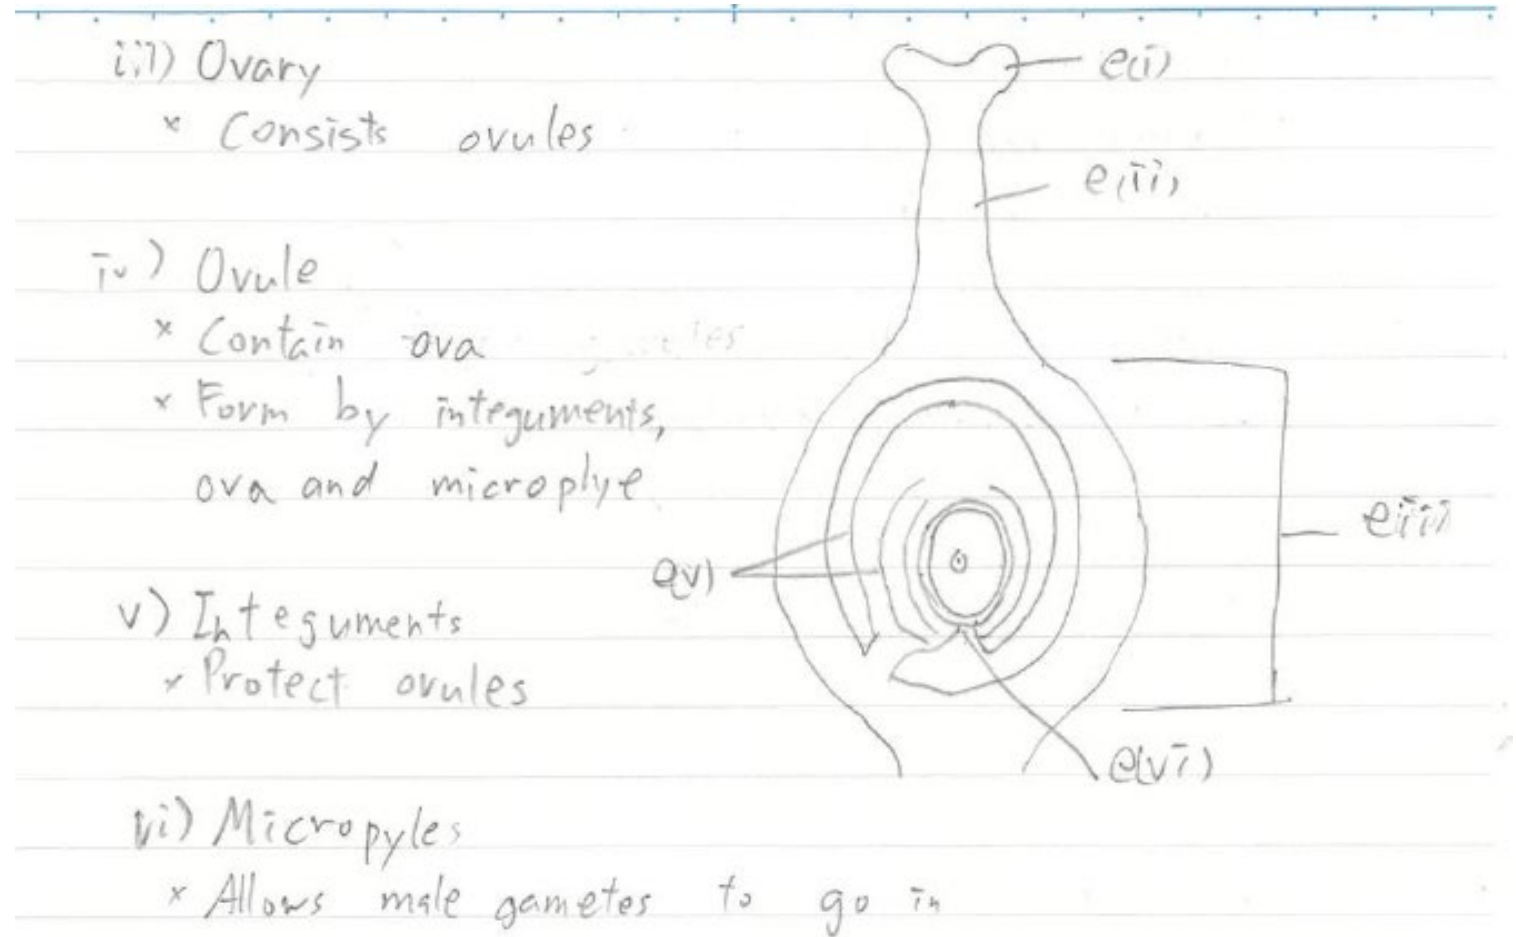 iii) Ovary
× Consists ovules
iv) Ovule
× Contain ova
× Form by integuments,
ova and microplye
v) Integuments
× Protect ovules
vi) Micropyles
× Allows male gametes to go in
e(i)
e(ii)
eiii)
e(v)
e(vi)